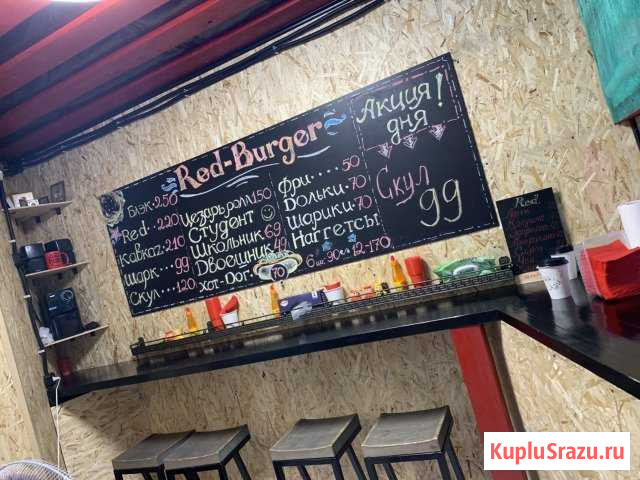 Red-Burger
Блэк-250
Red..220
Кавказ-210
Шарк...99
Скул....120
Цезарь ролл 150
Студент
Школьник 69
Двоешник 49
Хот-Dог 70
Фри.....50
Дольки-70
Шарики-70
Наггетсы
6 шт. 90
12-170
Акция!
дня
Скул
99
Red
KupluSrazu.ru